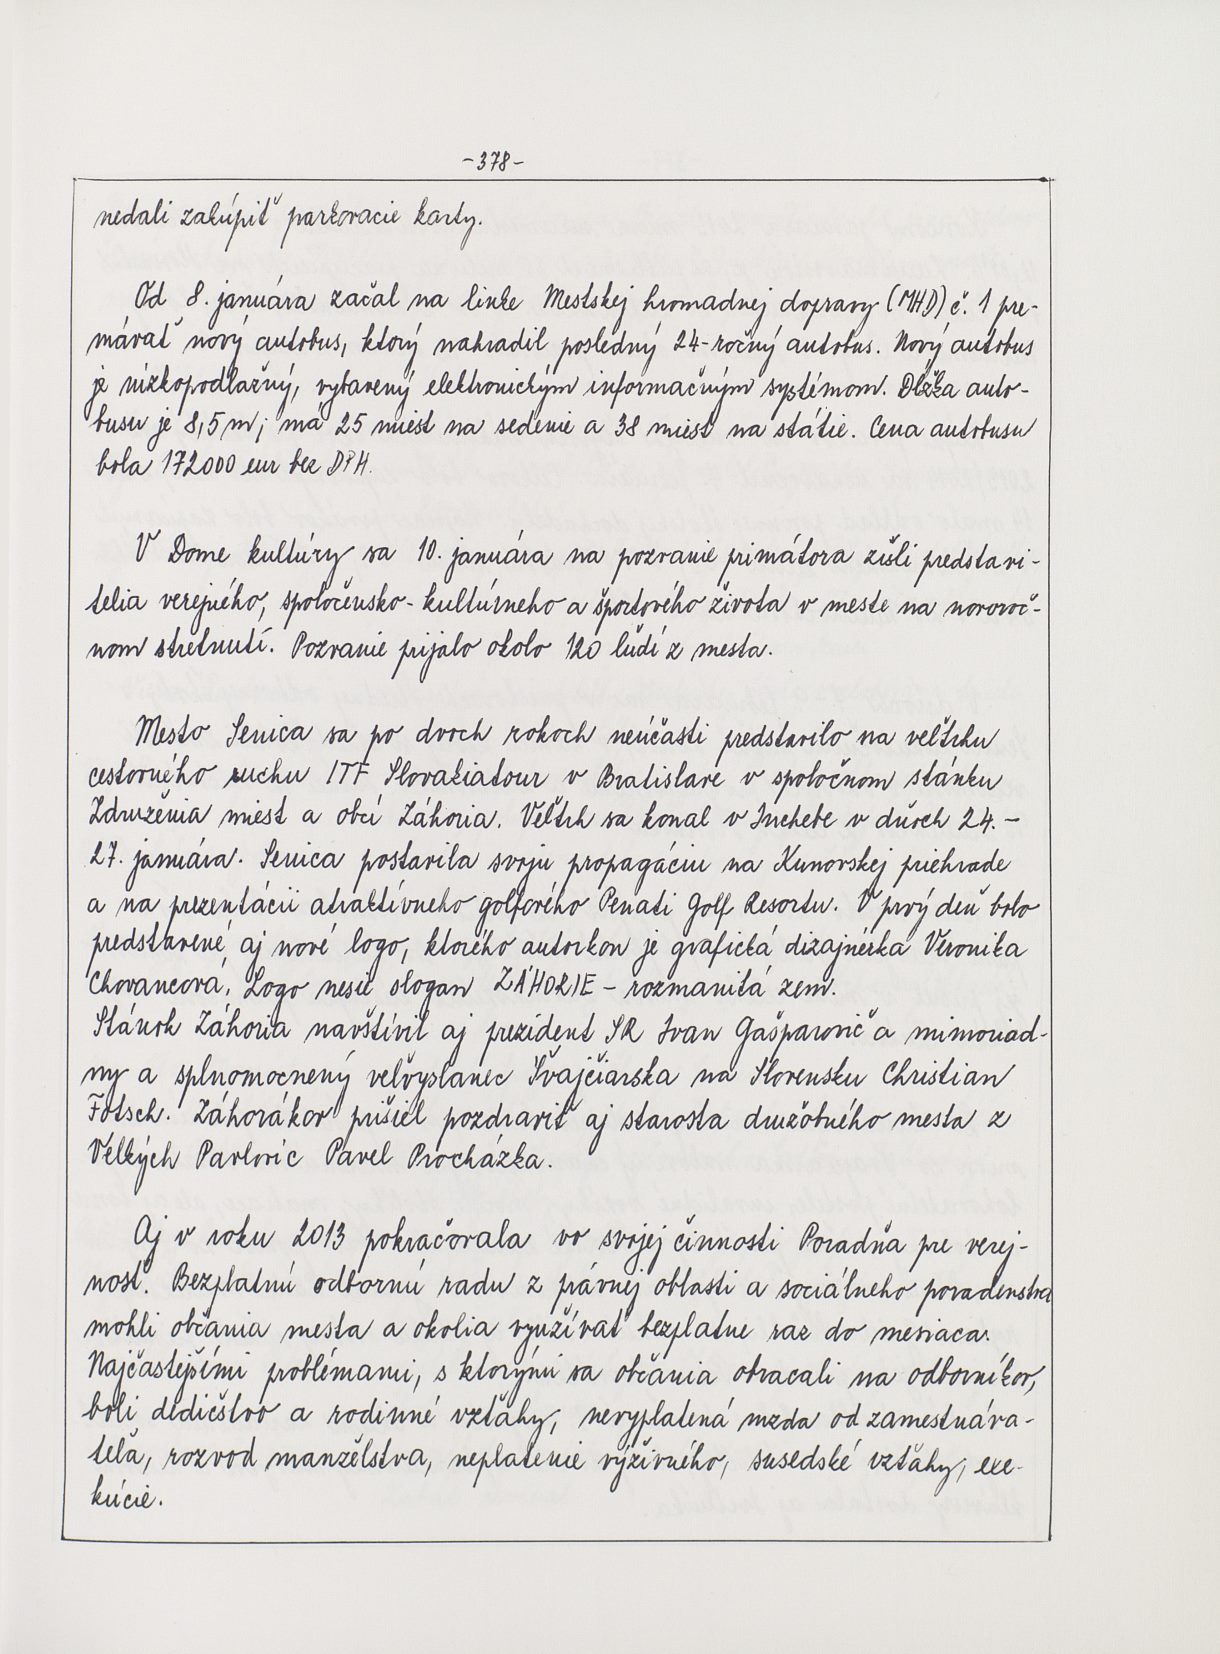 -378-
nedali zakúpiť parkovacie karty.
Od 8. januára začal na linke Mestskej hromadnej dopravy (MHD) č. 1 pre-
mávať nový autobus, ktorý nahradil posledný 24-ročný autobus. Nový autobus
je nízkopodlažný, vybavený elektronickým informačným systémom. Dĺžka auto-
busu je 8,5 m, má 25 miest na sedenie a 38 miest na státie. Cena autobusu
bola 172000 eur bez DPH.
V Dome kultúry sa 10. januára na pozvanie primátora zišli predstavi-
telia verejného, spoločensko-kultúrneho a športového života v meste na novoroč-
nom stretnutí. Pozvanie prijalo okolo 120 ľudí z mesta.
Mesto Senica sa po dvoch rokoch neúčasti predstavilo na veľtrhu
cestovného ruchu ITF Slovakiatour v Bratislave v spoločnom stánku
Združenia miest a obcí Záhoria. Veľtrh sa konal v Inchebe v dňoch 24. -
27. januára. Senica postavila svoju propagáciu na Kunovskej priehrade
a na prezentácii atraktívneho golfového Penati Golf Resortu. V prvý deň bolo
predstavené aj nové logo, ktorého autorkou je grafická dizajnérka Veronika
Chovancová. Logo nesie slogan ZÁHORIE - rozmanitá zem.
Stánok Záhoria navštívil aj prezident SR Ivan Gašparovič a mimoriad-
ny a splnomocnený veľvyslanec Švajčiarska na Slovensku Christian
Fotsch. Záhorákov prišiel pozdraviť aj starosta družobného mesta z
Veľkých Pavlovíc Pavel Procházka.
Aj v roku 2013 pokračovala vo svojej činnosti Poradňa pre verej-
nosť. Bezplatnú odbornú radu z právnej oblasti a sociálneho poradenstva
mohli občania mesta a okolia využívať bezplatne raz do mesiaca.
Najčastejšími problémami, s ktorými sa občania obracali na odborníkov,
boli dedičstvo a rodinné vzťahy, nevyplatená mzda od zamestnáva-
teľa, rozvod manželstva, neplatenie výživného, susedské vzťahy, exe-
kúcie.